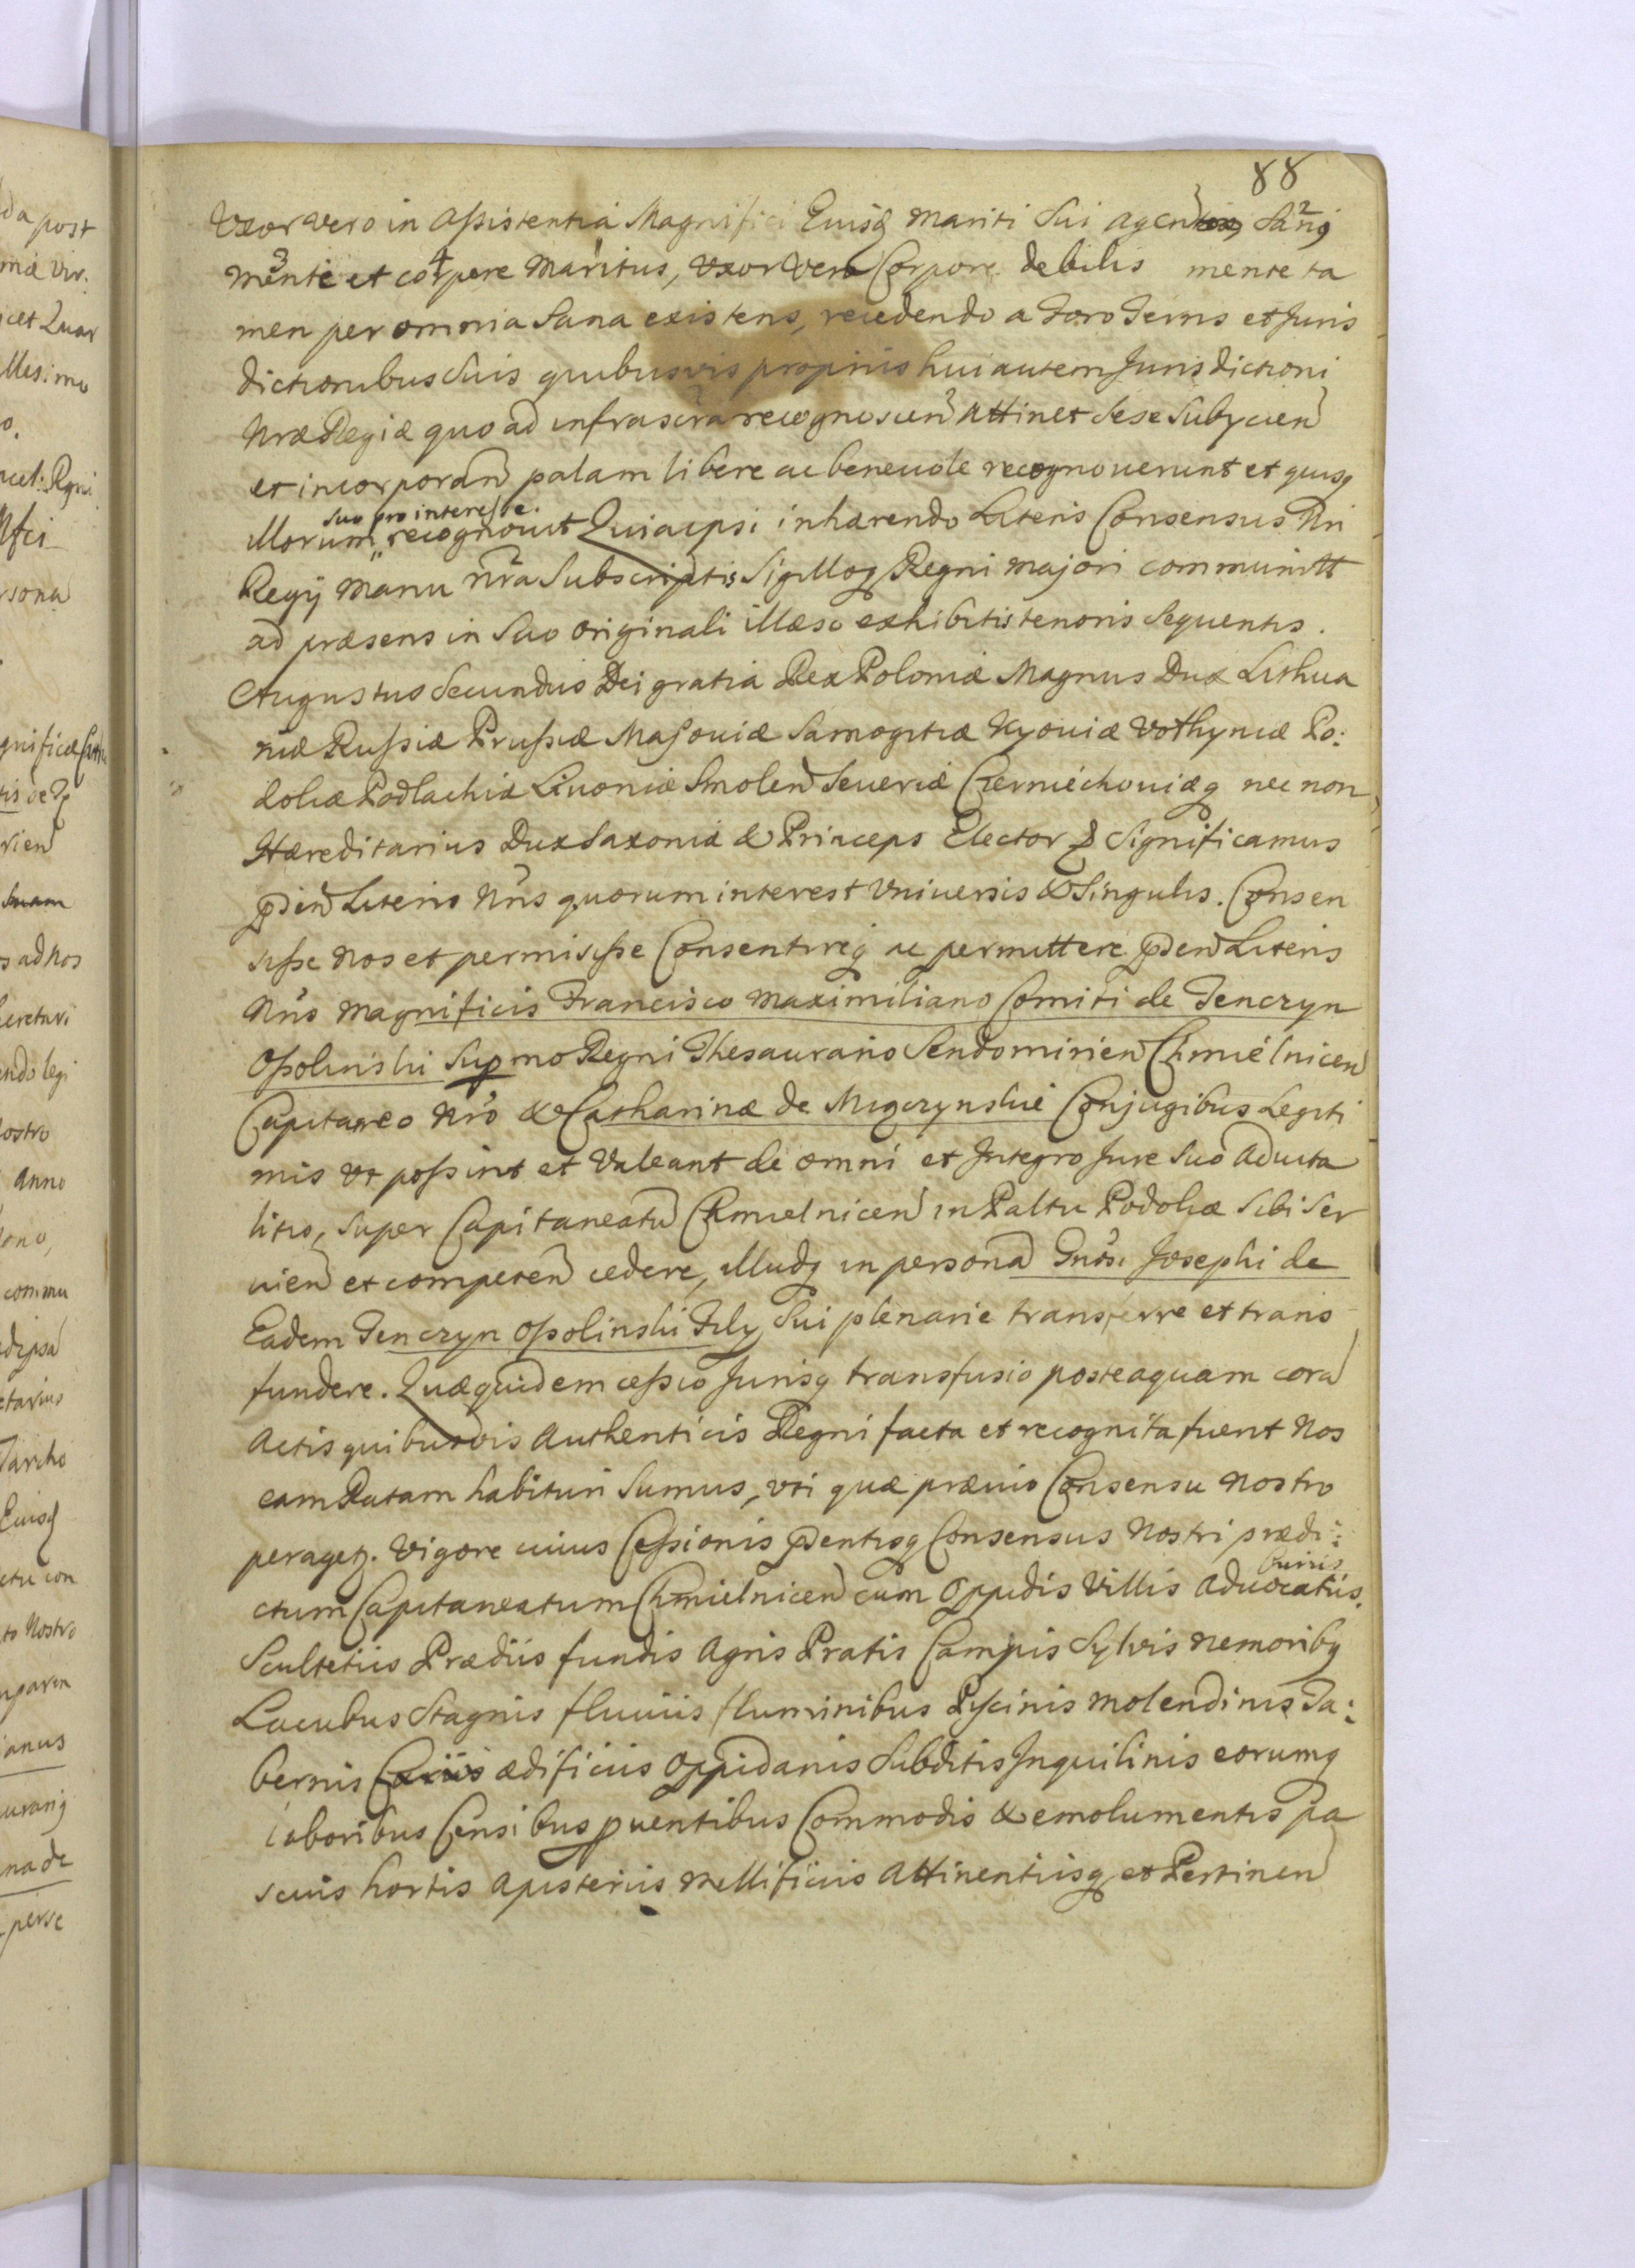 88
Uxor vero in Assistentia Magnifici Eiusd Mariti Sui agen Sanq
mente et corpere Maritus, Uxor Vero Corpore debilis mente ta
men per omnia Sana existens, recedendo a Foro Terris et Juris
dictionibus Suis quibusvis propriis huic autem Jurisdictioni
Nræ Regiæ quo ad infrascra recognoscen attinet Sese Subycien
et incorporan palam libere ac beneuole recognouerunt et quisq
suo pro interesse.
Illorum recognouit Quia ipsi inhærendo Literis Consensus Nri
Regij Manu nra Subscriptis Sigilloq Regni majori communitt
ad præsens in Suo Originali illæso exhibitis tenoris Sequentis.
Augustus Secundus Dei gratia Rex Poloniæ Magnus Dux Lithua
niæ Russiæ Prussiæ Masouiæ Samogitiæ Kyouiæ Volhyniæ Po:
doliæ Podlachiæ Liuoniæ Smolen Seueriæ Czerniechouiæq nec non
Hæreditarius Dux Saxoniæ & Princeps Elector & Significamus
pden Literis Nris quorum interest Uniuersis & Singulis. Consen
sisse Nos et permisisse Consentireq ac permittere pden Literis
Nris Magnificis Francisco Maximiliano Comiti de Tenczyn
Ossolinski Supmo Regni Thesaurario Sendomirien Chmielnicen
Capitaneo Nro & Catharinæ de Miączynskie Conjugibus Legiti
mis Ut possint et Valeant de omni et Integro Jure Suo Aduita
litio, Super Capitaneatu Chmielnicen in Paltu Podoliæ Sibi Ser
uien et competen cedere, Illudq in persona Gnosi Josephi de
Eadem Tenczyn Ossolinski Fily Sui plenarie transferre et trans
fundere. Quæquidem cessio Jurisq transfusio posteaquam cora
Actis quibusvis Authenticis Regni facta et recognita fuerit Nos
eam Ratam habituri Sumus, uti quæ præuio Consensu Nostro
peragetz. Vigore cuius Cessionis pdentisq Consensus Nostri prædi:
ctum Capitaneatum Chmielnicen cum Oppidis Villis Aduocatiis.
Scultetiis Prædiis fundis Agris Pratis Campis Syluis Nemoribq
Lacubus Stagnis fluuiis fluminibus Piscinis Molendinis Ta:
bernis ædificiis Oppidanis Subditis Inquilinis eorumq
laboribus Censibus puentibus Commodis & emolumentis pa
scuis hortis Apisteriis Mellificiis Attinentiisq et Pertinen